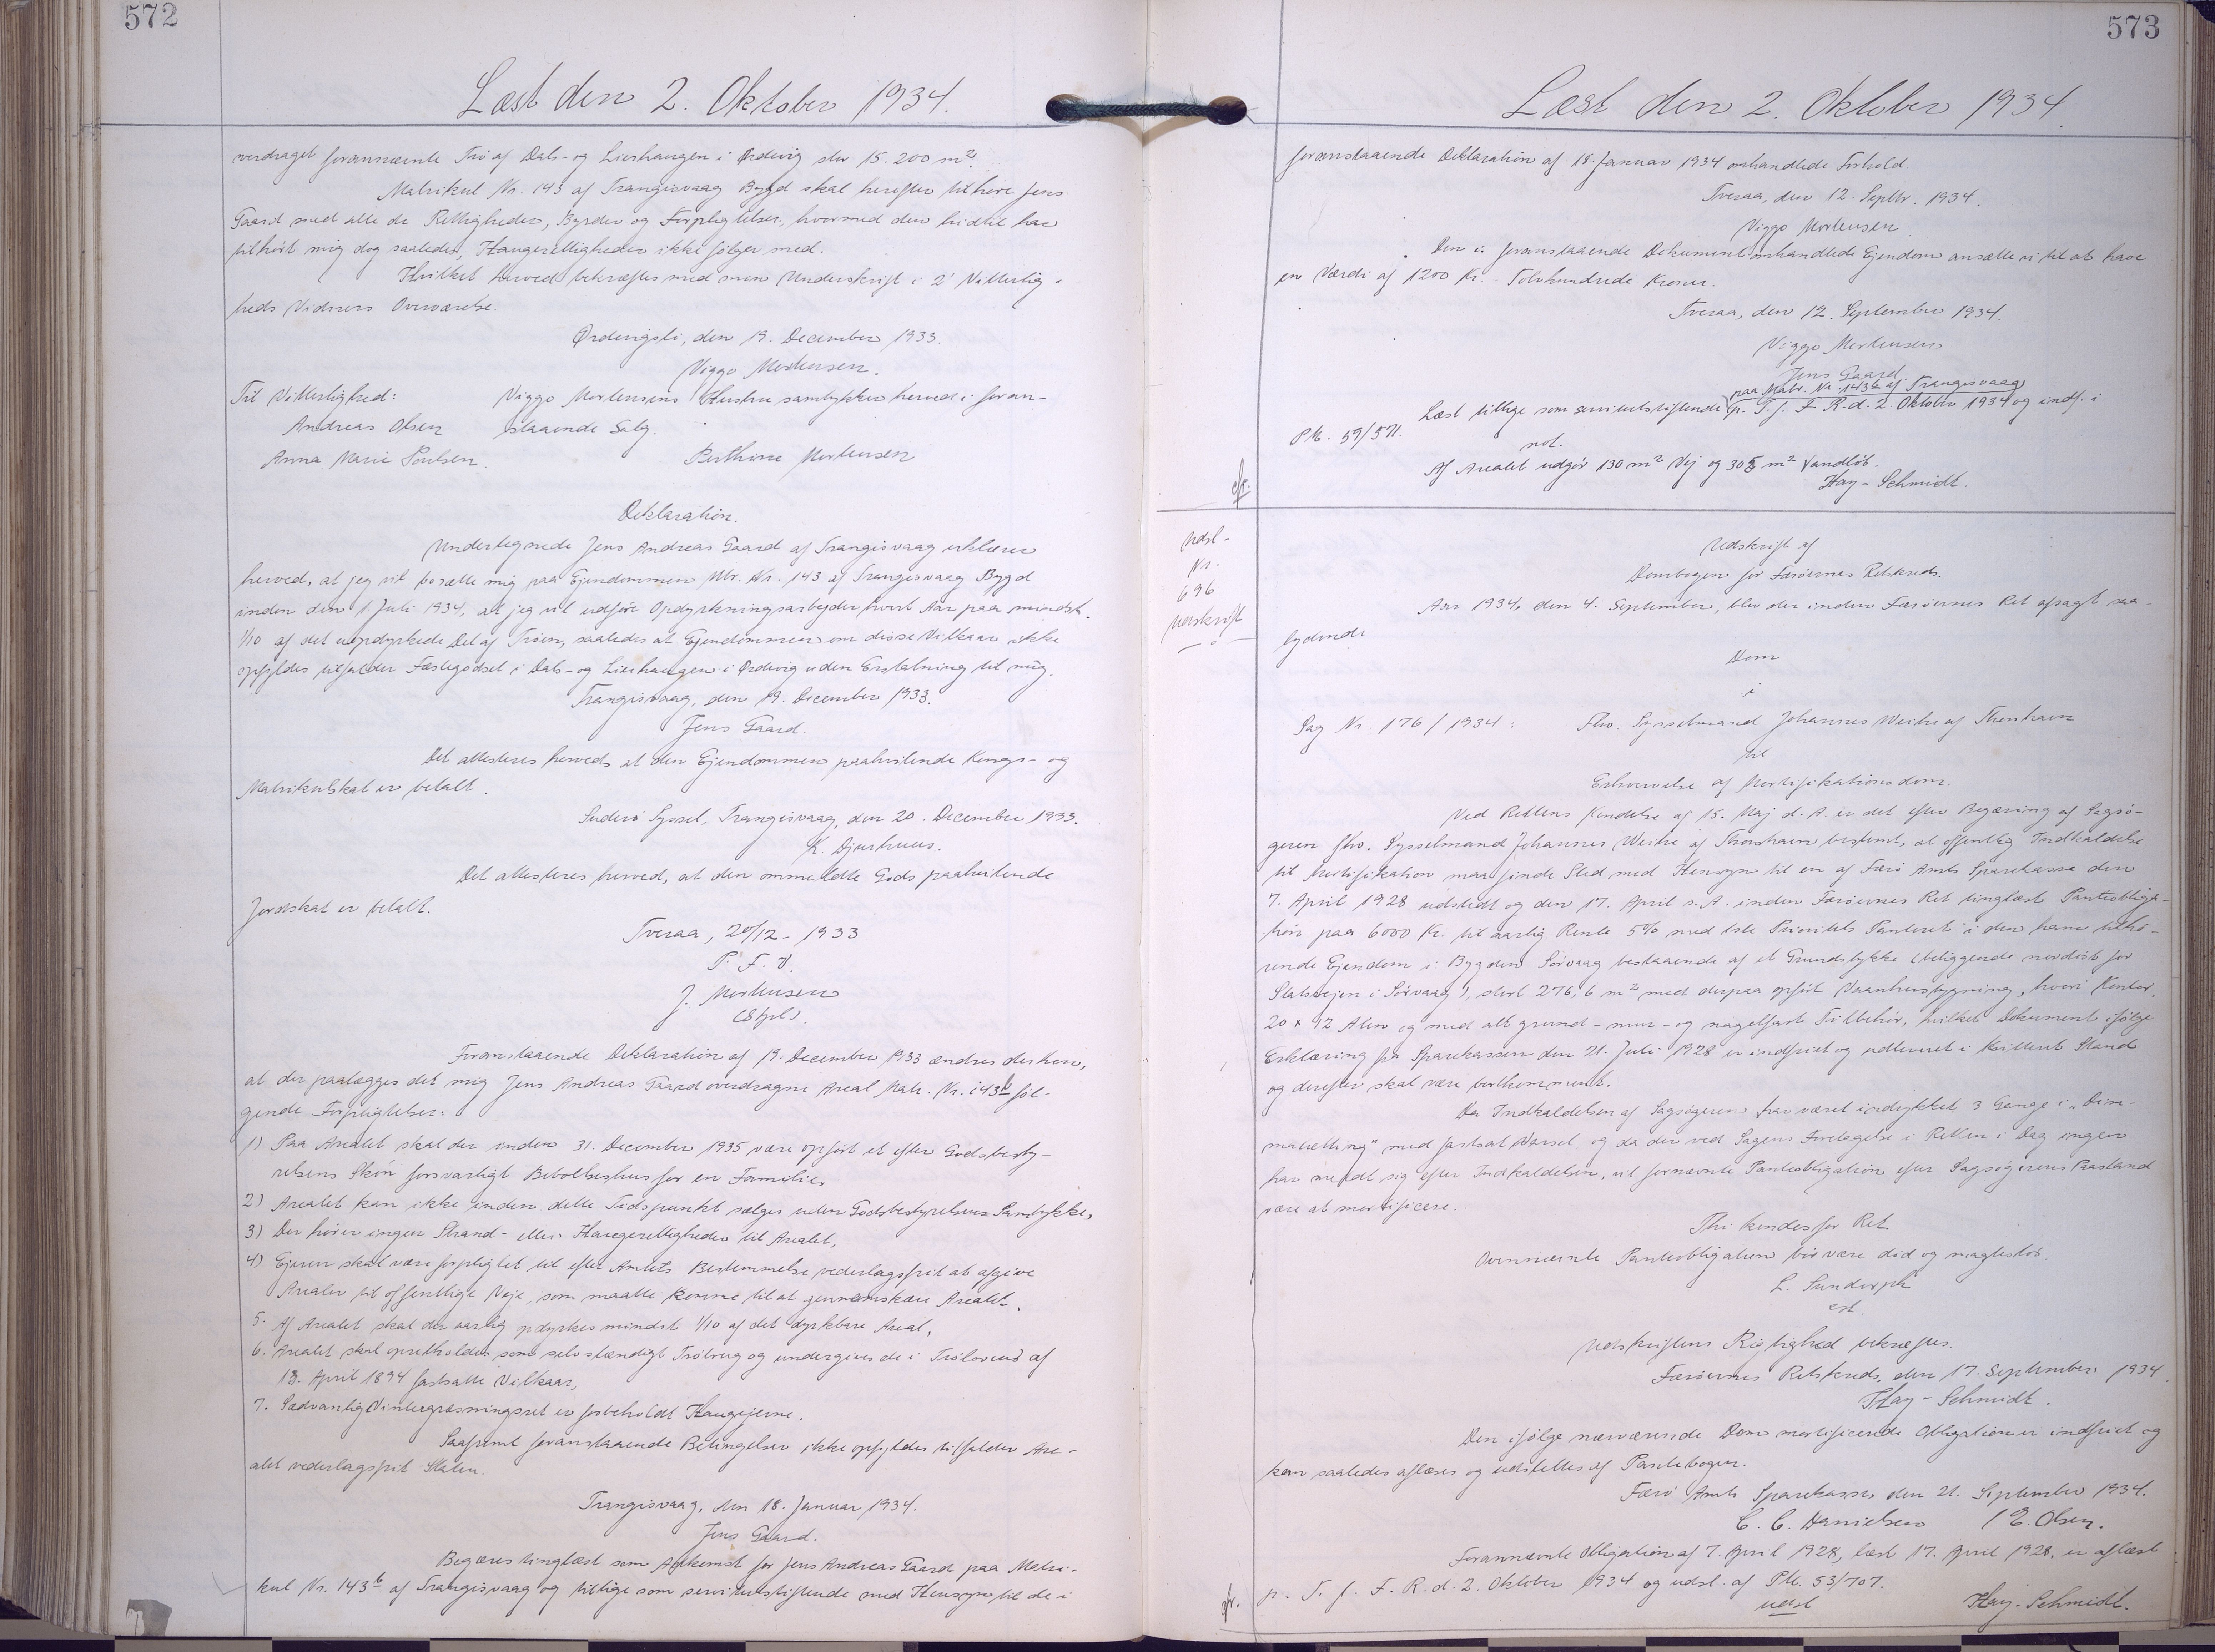 572
Læst den 2. Oktober 1934.
overdraget forannævnte Trø af Dals- og Lierhaugen i Ørdevig stor 15.200 m².
Matrikul Nr. 143 af Trangisvaag Bygd skal herefter tilhøre Jens
Gaard med alle de Rettigheder, Byrder og Forpligtelser, hvormed den hidtil har
tilhørt mig dog saaledes, Haugerettigheder ikke følger med.
Hvilket herved bekræftes med min Underskrift i 2 Vitterlig-
heds Vidners Overværelse.
Ørdevigsli, den 19. December 1933.
Viggo Mortensen.
Til Vitterlighed: Viggo Mortensens Hustru samtykker herved i foran-
Andreas Olsen staaende Salg.
Anna Marie Poulsen. Berthine Mortensen
Deklaration.
Undertegnede Jens Andreas Gaard af Trangisvaag erklærer
herved, at jeg vil bosætte mig paa Ejendommen Mtr. Nr. 143 af Trangisvaag Bygd
inden den 1. Juli 1934, at jeg vil udføre Opdyrkningsarbejder hvert Aar paa mindst
1/10 af det uopdyrkede Del af Trøen, saaledes at Ejendommen om disse Vilkaar ikke
opfyldes tilfalder Fæstegodset i Dals- og Lierhaugen i Ørdevig uden Erstatning til mig.
Trangisvaag, den 19. December 1933.
Jens Gaard.
Det attesteres herved, at den Ejendommen paahvilende Konge- og
Matrikulskat er betalt.
Suderø Syssel, Trangisvaag, den 20. December 1933.
K. Djurhuus.
Det attesteres herved, at den ommeldte Gods paahvilende
Jordskat er betalt.
Tveraa, 20/12 - 1933
P. F. V.
J. Mortensen
(Stpl).
Foranstaaende Deklaration af 19. December 1933 ændres derhen,
at der paalægges det mig Jens Andreas Gaard overdragne Areal Matr. Nr. 143b føl-
gende Forpligtelser:
1) Paa Arealet skal der inden 31. December 1935 være opført et efter Godsbesty-
relsens Skøn forsvarligt Beboelseshus for en Familie,
2) Arealet kan ikke inden dette Tidspunkt sælges uden Godsbestyrelsens Samtykke,
3) Der hører ingen Strand- eller Haugerettigheder til Arealet,
4) Ejeren skal være forpligtet til efter Amtets Bestemmelse vederlagsfrit at afgive
Arealer til offentlige Veje, som maatte komme til at gennemskære Arealet.
5. Af Arealet skal der aarlig opdyrkes mindst 1/10 af det dyrkbare Areal,
6. Arealet skal opretholdes som selvstændigt Trøbrug og undergives de i Trøloven af
13. April 1894 fastsatte Vilkaar,
7. Sædvanlig Vintergræsningsret er forbeholdt Haugejerne.
Saafremt foranstaaende Betingelser ikke opfyldes tilfalder Are-
alet vederlagsfrit Staten.
Trangisvaag, den 18. Januar 1934.
Jens Gaard.
Begæres tinglæst som Adkomst for Jens Andreas Gaard paa Matri-
kul Nr. 143b af Trangisvaag og tillige som servitutstiftende med Hensyn til de i
573
Læst den 2. Oktober 1934
foranstaaende Deklaration af 18. Januar 1934 omhandlede Forhold.
Tveraa, den 12. Septbr. 1934.
Viggo Mortensen.
Den i foranstaaende Dokument omhandlede Ejendom ansætte vi til at have
en Værdi af 1200 Kr. - Tolvhundrede Kroner.
Tveraa, den 12. September 1934.
Viggo Mortensen
Jens Gaard.
paa Matr. Nr. 143b af Trangisvaag
Læst tillige som servitutstiftende p. T. f. F. R. d. 2. Oktober 1934 og indf. i
Ptb. 59/571.
not.
Af Arealet udgør 130 m² Vej og 305 m² Vandløb.
Hay-Schmidt.
Udsl-
Nr.
696
Udskrift
Udskrift af
Dombogen for Færøernes Retskreds.
Aar 1934, den 4. September, blev der inden Færøernes Ret afsagt saa-
lydende
Dom
i
Sag Nr. 176/1934: Fhv. Sysselmand Johannes Weihe af Thorshavn
til
Erhvervelse af Mortifikationsdom.
Ved Rettens Kendelse af 15. Maj d. A. er det efter Begæring af Sagsø-
geren fhv. Sysselmand Johannes Weihe af Thorshavn bestemt, at offentlig Indkaldelse
til Mortifikation maa finde Sted med Hensyn til en af Færø Amts Sparekasse den
7. April 1928 udstedt og den 17. April s. A. inden Færøernes Ret tinglæst Panteobliga-
tion paa 6000 Kr. til aarlig Rente 5% med 1ste Prioritets Panteret i den ham tilhø-
rende Ejendom i Bygden Sørvaag bestaaende af et Grundstykke (beliggende nordost for
Statsvejen i Sørvaag), stort 276,6 m² med derpaa opført Vaanhusbygning, hvori Kontor,
20 x 12 Alen og med alt grund-, mur- og nagelfast Tilbehør, hvilket Dokument ifølge
Erklæring fra Sparekassen den 21. Juli 1928 er indfriet og udleveret i kvitteret Stand
og derefter skal være bortkommet.
Da Indkaldelsen af Sagsøgeren har været indrykket 3 Gange i "Dim-
malætting" med fastsat Varsel og da der ved Sagens Foretagelse i Retten i Dag ingen
har meldt sig efter Indkaldelsen, vil fornævnte Panteobligation efter Sagsøgerens Paastand
være at mortificere.
Thi kendes for Ret
Ovennævnte Panteobligation bør være død og magtesløs.
L. Sundorph
cst.
Udskriftens Rigtighed bekræftes.
Færøernes Retskreds, den 17. September 1934.
Hay-Schmidt.
Den ifølge nærværende Dom mortificerede Obligation er indfriet og
kan saaledes aflæses og udslettes af Pantebogen.
Færø Amts Sparekasse, den 21. September 1934.
C. C. Danielsen / E. Olsen.
Forannævnte Obligation af 7. April 1928, læst 17. April 1928, er aflæst
p. T. f. F. R. d. 2. Oktober 1934 og udsl. af Ptb. 53/707.
udsl
Hay-Schmidt.